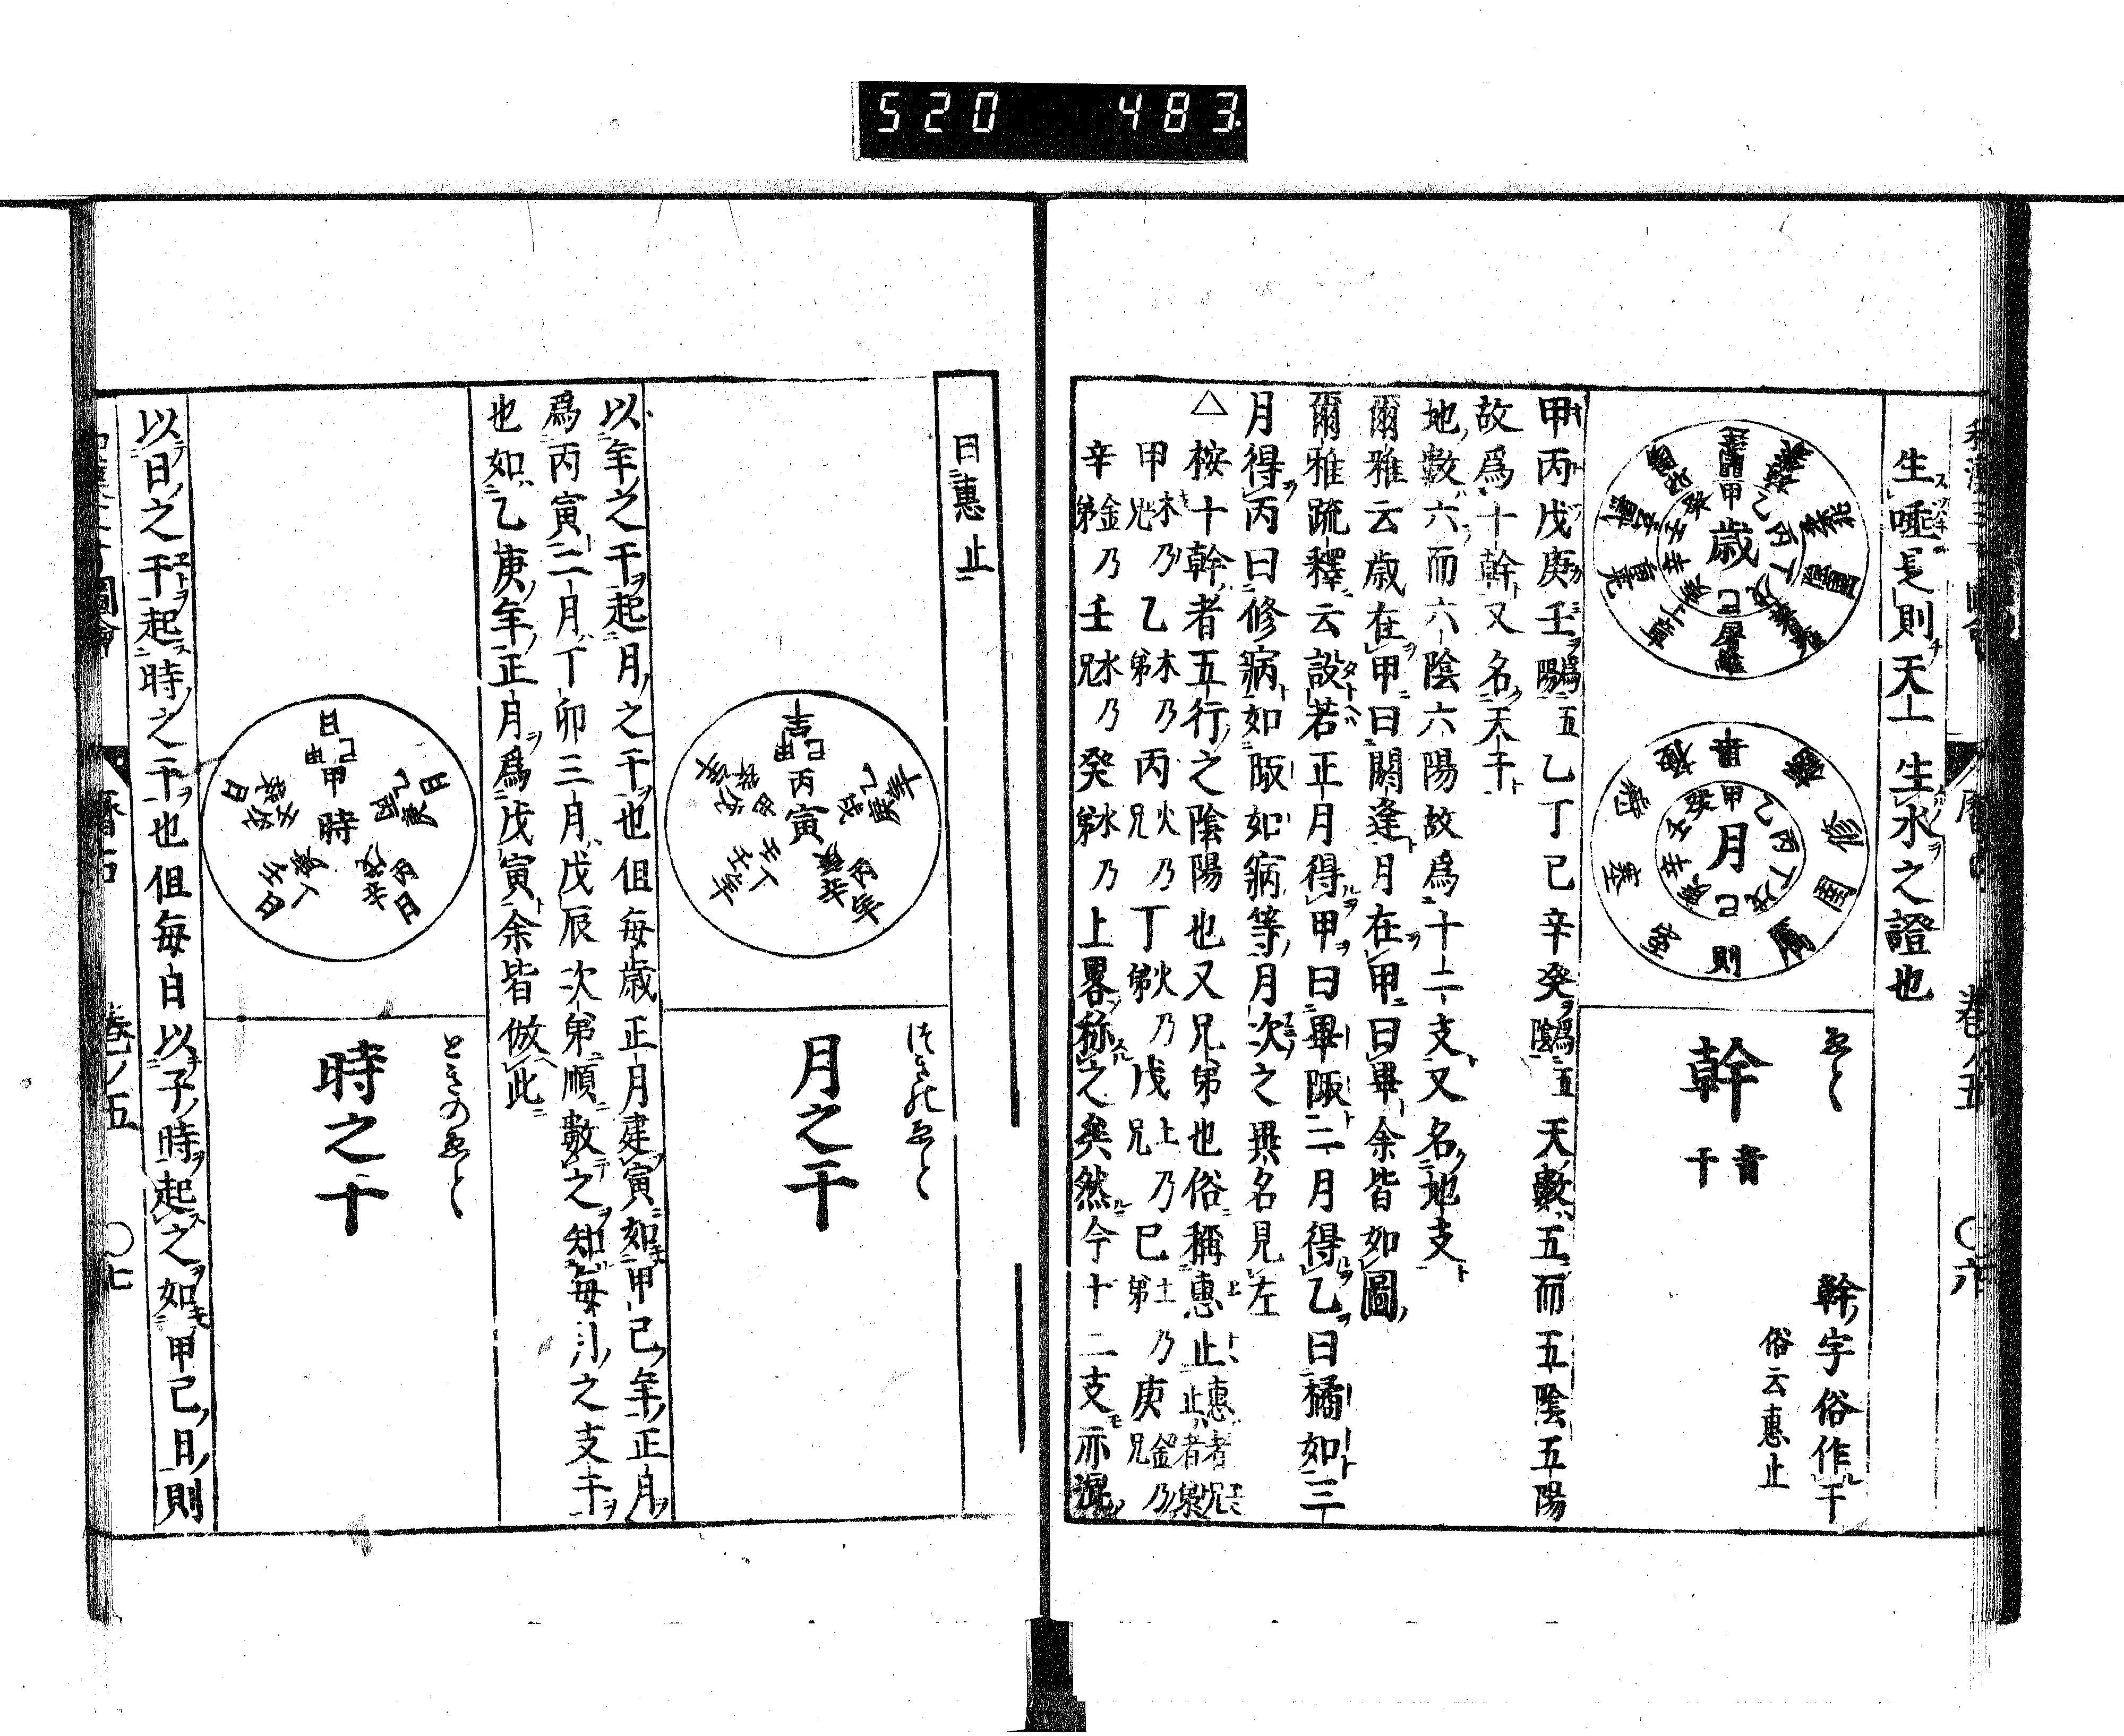 520 483
生唾長則天一生水之證也
歳
甲乙丙丁戊己庚辛壬癸
月
甲乙丙丁戊己庚辛壬癸
ゑと
幹
音干
幹字俗作干
俗云惠止
甲丙戊庚壬爲五陽乙丁己辛癸爲五陰天數五而五陰五陽
故爲十幹又名天干
地數六而六陰六陽故爲十二支又名地支
爾雅云歳在甲曰閼逢月在甲曰畢余皆如圖
爾雅疏釋云設若正月得甲曰畢陬二月得乙曰橘如三
月得丙曰修病如陬如病等月次之異名見左
△桉十幹者五行之陰陽也又兄弟也俗稱惠止惠者兄止者弟
甲木乃兄乙木乃弟丙火乃兄丁火乃弟戊土乃兄己土乃弟庚金乃兄
辛金乃弟壬水乃兄癸水乃弟上畧称之矣然今十二支亦混
曰惠止
つきのゑと
月之干
丙寅
以年之干起月之干也但每歳正月建寅如甲己年正月
爲丙寅二月丁卯三月戊辰次第順數之知每月之支干
也如乙庚年正月爲戊寅余皆倣此
ときのゑと
時之干
時
以日之干起時之干也但每日以子時起之如甲己日則